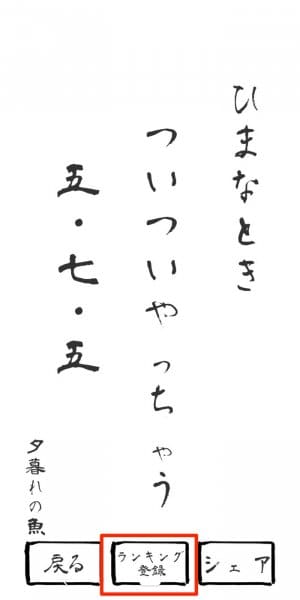 ひまなとき
ついついやっちゃう
五・七・五
夕暮れの魚
戻る
ランキング
登録
シェア